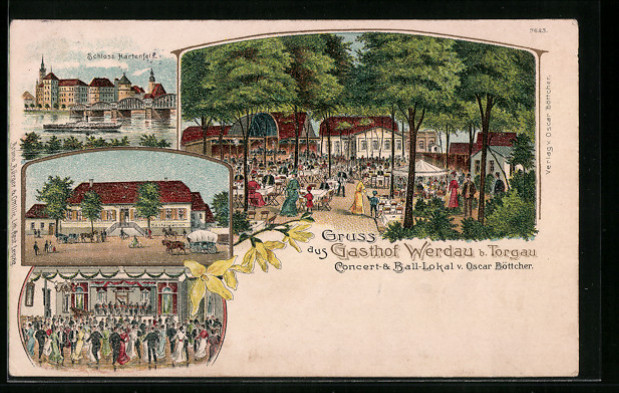 9643.
Schloss Hartenfels
Verlag v. Oscar Böttcher.
Gruss
aus Gasthof Werdau b. Torgau
Concert- & Ball-Lokal v. Oscar Böttcher.